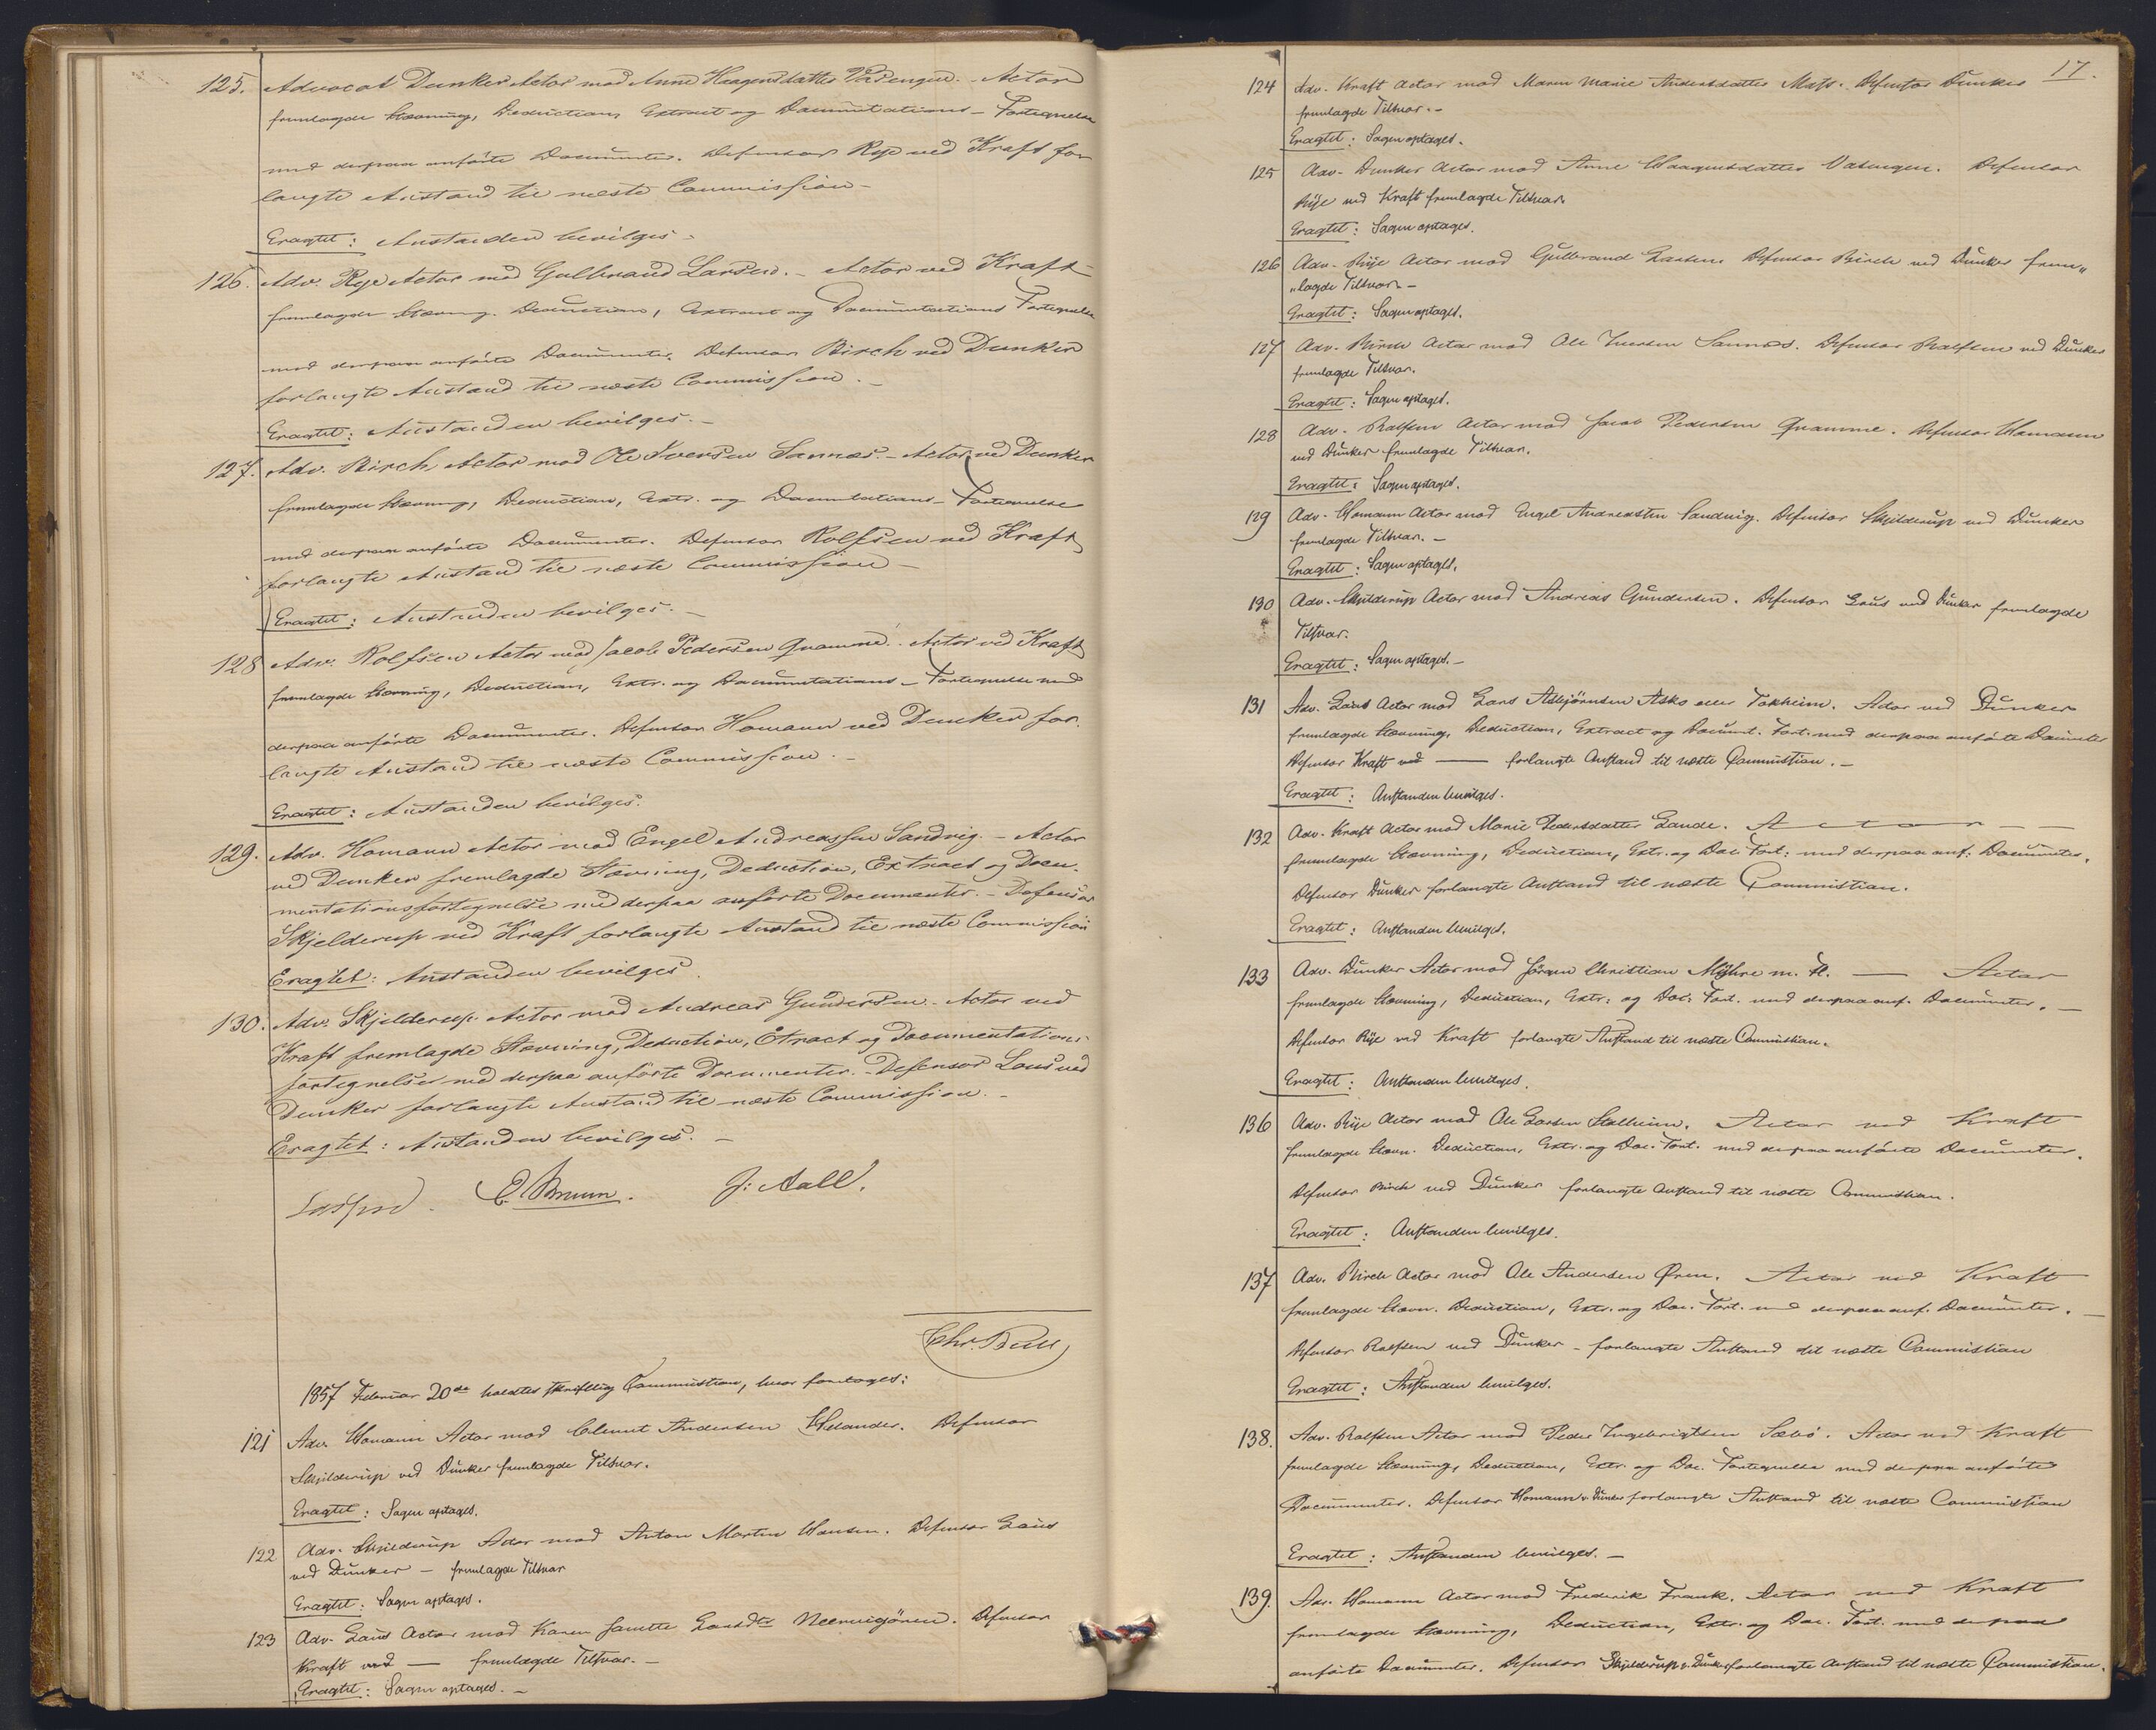 125. Advocat Dunker Actor mod Anne Haagensdatter Vasengen. - Actor
fremlagde Stævning, Deduction, Extract og Documentations-Fortegnelse
med derpaa anførte Documenter. Defensor Rye ved Kraft for
langte Anstand til næste Commission -
Eragtet: Anstanden bevilges -
126. Adv. Rye Actor mod Gulbrand Larsen. - Actor ved Kraft
fremlagde Stævning, Deduction, Extract og Documentations Fortegnelse
med derpaa anførte Documenter. Defensor Birch ved Dunker
forlangte Anstand til næste Commission. -
Eragtet: Anstanden bevilges. -
127. Adv. Birch Actor mod Ole Iversen Sannæs. - Actor ved Dunker
fremlagde Stævning, Deduction, Extr. og Documentations-Fortegnelse
med derpaa anførte Documenter. Defensor Rolfsen ved Kraft
forlangte Anstand til næste Commission -
Eragtet: Anstanden bevilges. -
128 Adv. Rolfsen Actor mod Jacob Pedersen Qvamme. - Actor ved Kraft
fremlagde Stævning, Deduction, Extr. og Documentations-Fortegnelse med
derpaa anførte Documenter. Defensor Homann ved Dunker for
langte Anstand til næste Commission. -
Eragtet: Anstanden bevilges.
129. Adv. Homann Actor mod Engel Andreassen Sandvig. - Actor
ved Dunker fremlagde Stævning, Deduction, Extract og Docu-
mentationsfortegnelse med derpaa anførte Documenter. - Defensor
Skjelderup ved Kraft forlangte Anstand til næste Commission
Eragtet: Anstanden bevilges.
130. Adv. Skjelderup Actor mod Andreas Gundersen. - Actor ved
Kraft fremlagde Stævning, Deduction, Etract og Documentations
fortegnelse med derpaa anførte Documenter. - Defensor Lous ved
Dunker forlangte Anstand til næste Commission. -
Eragtet: Anstanden bevilges. -
E. Bruun. J: Aall.
Chr. Bull
1857 Februar 20de holdtes skriftlig Commission, hvor foretoges:
121 Adv. Homann Actor mod Clemet Andersen Defensor
Skjelderup ved Dunker fremlagde Tilsvar.
Eragtet: Sagen optages.
122 Adv. Skjelderup Actor mod Anton Martin Hansen. Defensor Lous
ved Dunker - fremlagde Tilsvar
Eragtet: Sagen optages.
123 Adv. Lous Actor mod Karen Larsdtr Defensor
Kraft ved — fremlagde Tilsvar. -
Eragtet: Sagen optages. -
17.
124 Adv. Kraft Actor mod Maren Marie Andersdatter Defensor Dunker
fremlagde Tilsvar. -
Eragtet: Sagen optages.
125 Adv. Dunker Actor mod Anne Haagensdatter Vasengen. Defensor
Rije ved Kraft fremlagde Tilsvar
Eragtet: Sagen optages.
126 Adv. Rije Actor mod Gulbrand Larsen. Defensor Birch ved Dunker frem„
„lagde Tilsvar. -
Eragtet: Sagen optages.
127 Adv. Birch Actor mod Ole Iversen Sannæs. Defensor Rolfsen ved Dunker
fremlagde Tilsvar.
Eragtet: Sagen optages.
128 Adv. Rolfsen Actor mod Jacob Pedersen Qvamme. Defensor Homann
ved Dunker fremlagde Tilsvar.
Eragtet: Sagen optages.
129 Adv. Homann Actor mod Engel Andreassen Sandvig. Defensor Skjelderup ved Dunker
fremlagde Tilsvar. -
Eragtet: Sagen optages.
130 Adv. Skjelderup Actor mod Andreas Gundersen. Defensor Lous ved Dunker fremlagde
Tilsvar.
Eragtet: Sagen optages. -
131 Adv. Lous Actor mod Lars Asbjørnsen Asko eller Tokheim. Actor ved Dunker
fremlagde Stævning, Deduction, Extract og Document. Fort. med derpaa anførte Documenter
Defensor Kraft ved — forlangte Anstand til næste Commission. -
Eragtet: Anstanden bevilges.
132 Adv. Kraft Actor mod Marie Pedersdatter Lande. Actor - -
fremlagde Stævning, Deduction, Extr. og Doc. Fort: med derpaa anf: Documenter.
Defensor Dunker forlangte Anstand til næste Commission.
Eragtet: Anstanden bevilges.
133 Adv. Dunker Actor mod Jørgen Christian Myhre m. fl. — Actor
fremlagde Stævning, Deduction, Extr: og Doc. Fort. med derpaa anf. Documenter. -
Defensor Rije ved Kraft forlangte Anstand til næste Commission.
Eragtet: Anstanden bevilges.
136 Adv. Rije Actor mod Ole Larsen Stalheim. Actor ved Kraft
fremlagde Stævn. Deduction, Extr. og Doc. Fort. med derpaa anførte Documenter.
Defensor Birch ved Dunker forlangte Anstand til næste Commission.
Eragtet: Anstanden bevilges.
137 Adv. Birch Actor mod Ole Andersen Øren. Actor ved Kraft
fremlagde Stævn. Deduction, Extr. og Doc. Fort. med derpaa anf. Documenter. -
Defensor Rolfsen ved Dunker - forlangte Anstand til næste Commission
Eragtet: Anstanden bevilges.
138. Adv. Rolfsen Actor mod Peder Ingebrigtsen Sæbø. Actor ved Kraft
fremlagde Stævning, Deduction, Extr. og Doc. Fortegnelse med derpaa anførte
Documenter. Defensor Homann v. Dunker forlangte Anstand til næste Commission
Eragtet: Anstanden bevilges. -
139. Adv. Homann Actor mod Frederik Frank. Actor ved Kraft
fremlagde Stævning, Deduction, Extr. og Doc. Fort. med derpaa
anførte Documenter. Defensor Skjelderup v. Dunker forlangte Anstand til næste Commission.